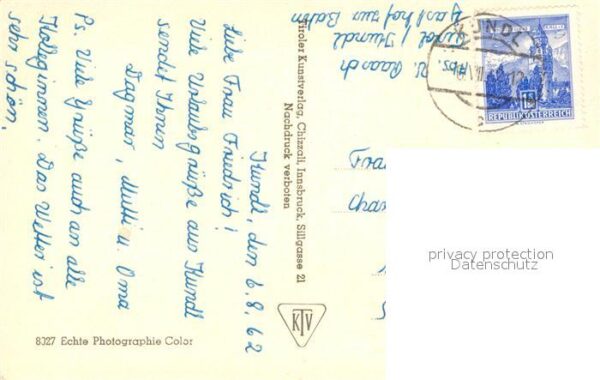 Kundl, den 6.8.62
Liebe Frau Friedrich!
Viele Urlaubsgrüße aus Kundl
sendet Ihnen
Dagmar, Mutti u. Oma
Ps. Viele Grüße auch an alle
Kolleginnen. Das Wetter ist
sehr schön.
8327 Echte Photographie Color
Tiroler Kunstverlag, Chizzali, Innsbruck, Sillgasse 21
Nachdruck verboten
KTV
Raasch
Tirol / Kundl
Gasthof zur Bahn
KUNDL
REPUBLIK ÖSTERREICH
privacy protection
Datenschutz